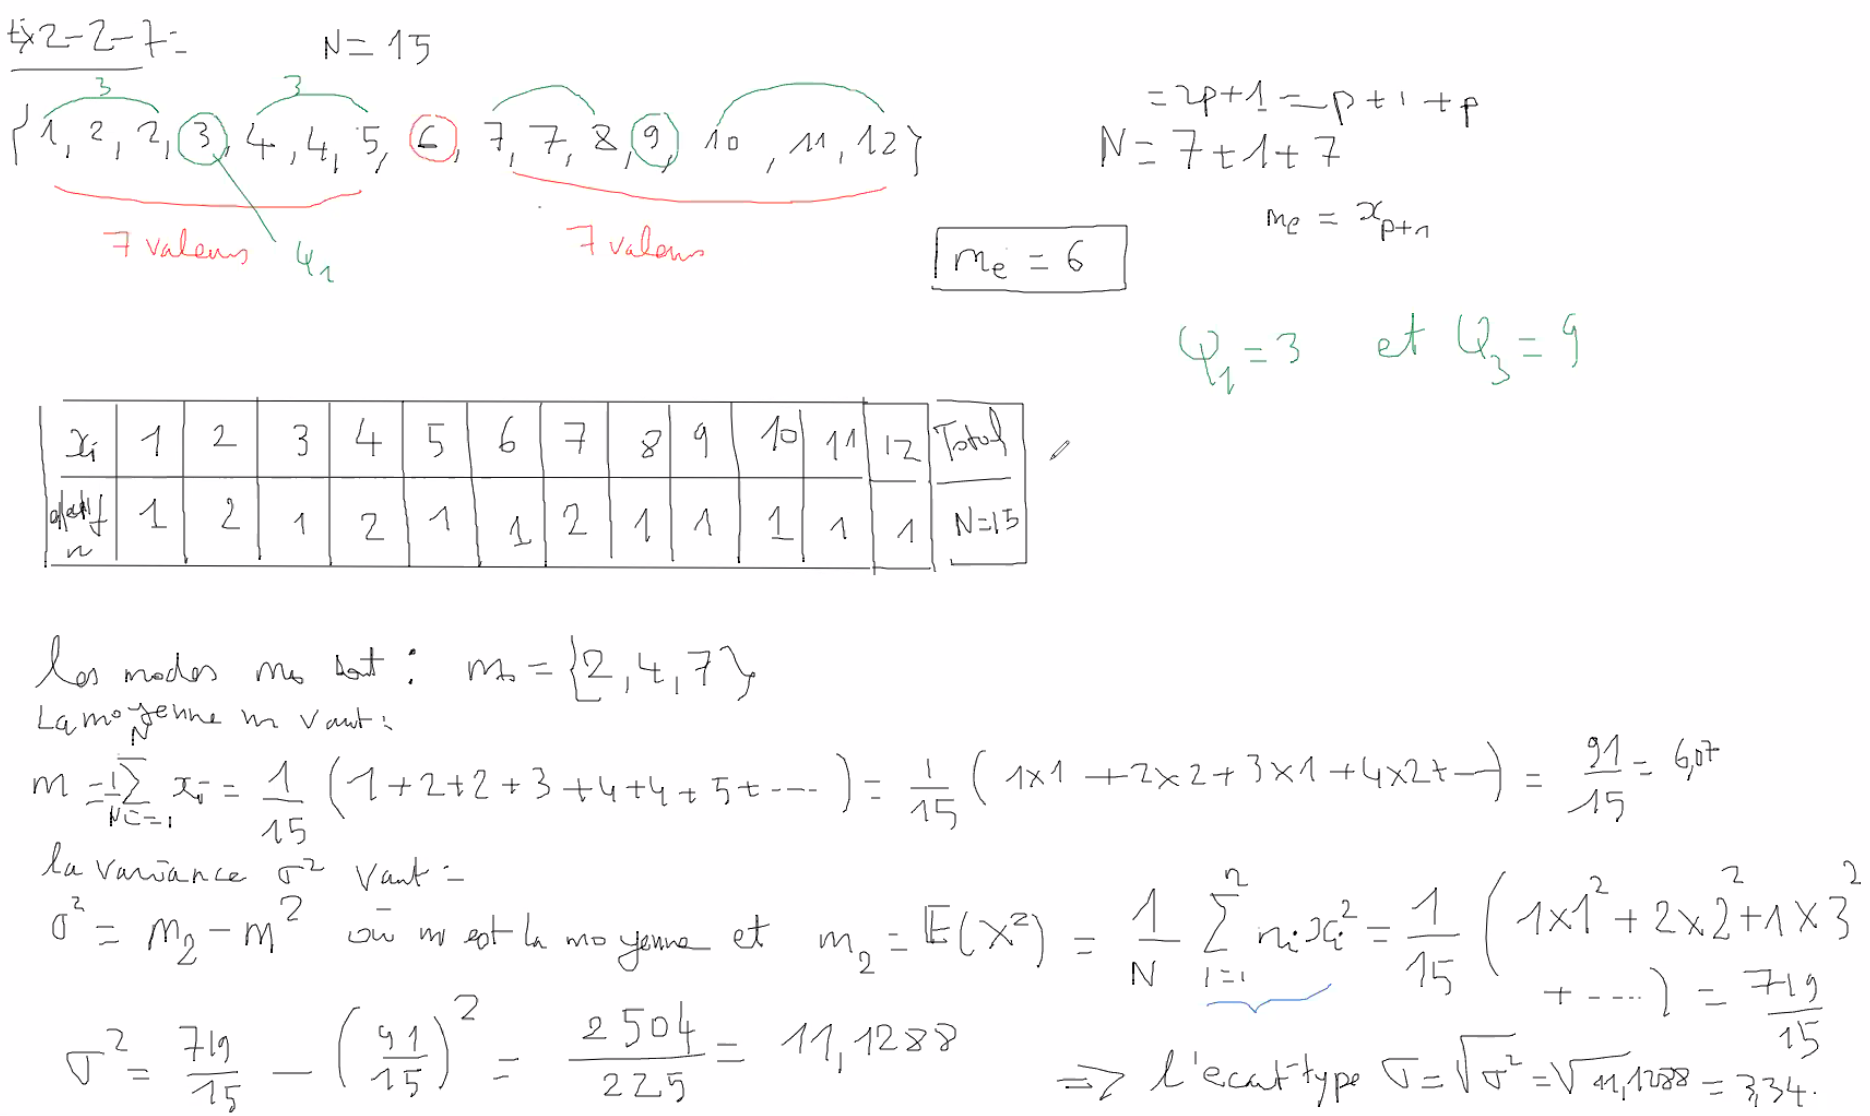 Ex 2-2-7=
N = 15
3 3
{1, 2, 2, 3, 4, 4, 5, 6, 7, 7, 8, 9, 10, 11, 12}
7 valeurs
φ1
7 valeurs
= 2p+1 = p+1+p
N = 7+1+7
me = x_{p+1}
me = 6
φ1 = 3 et φ3 = 9
xi 1 2 3 4 5 6 7 8 9 10 11 12 Total
n 1 2 1 2 1 1 2 1 1 1 1 1 N=15
les modes mo sont : mo = {2, 4, 7}
La moyenne m vaut :
m = 1/N ∑_{i=1}^{N} xi = 1/15 (1+2+2+3+4+4+5+....) = 1/15 (1x1+2x2+3x1+4x2+—) = 91/15 = 6,07
la variance σ² vaut =
σ² = m2 - m² où m est la moyenne et m2 = E(X²) = 1/N ∑_{i=1}^{n} ni xi² = 1/15 (1x1²+2x2²+1x3²
+ ....) = 719/15
σ² = 719/15 - (91/15)² = 2504/225 = 11,1288
=> l'ecart-type σ = √σ² = √11,1288 = 3,34.